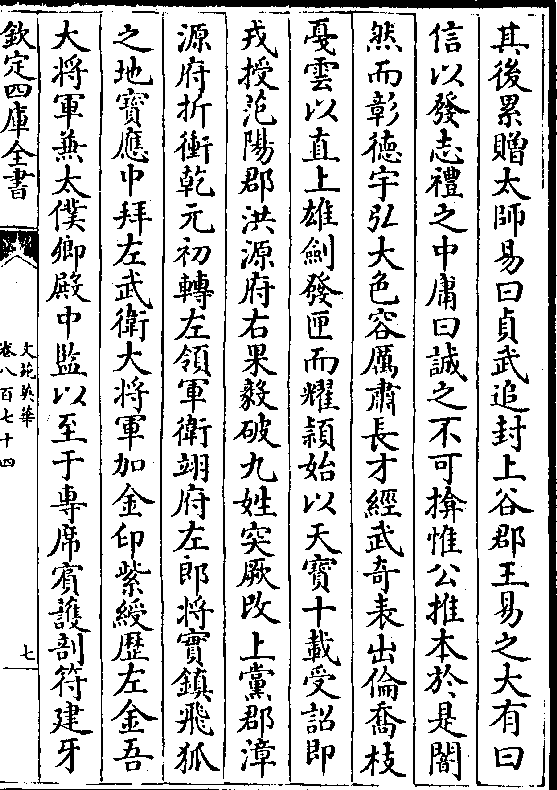 其後累贈太師易曰貞武追封上谷郡王易之大有曰
信以發志禮之中庸曰誠之不可揜惟公推本於是闇
然而彰德宇弘大色容厲肅長才經武奇表出倫喬枝
戞雲以直上雄劍發匣而耀穎始以天寶十載受詔即
戎授范陽郡洪源府右果毅破九姓突厥改上黨郡漳
源府折衝乾元初轉左領軍衛翊府左郎將實鎮飛狐
之地寶應中拜左武衛大將軍加金印紫綬歴左金吾
大將軍兼太僕卿殿中監以至于專席賓護剖符建牙
欽定四庫全書
文苑英華
卷八百七十四
七